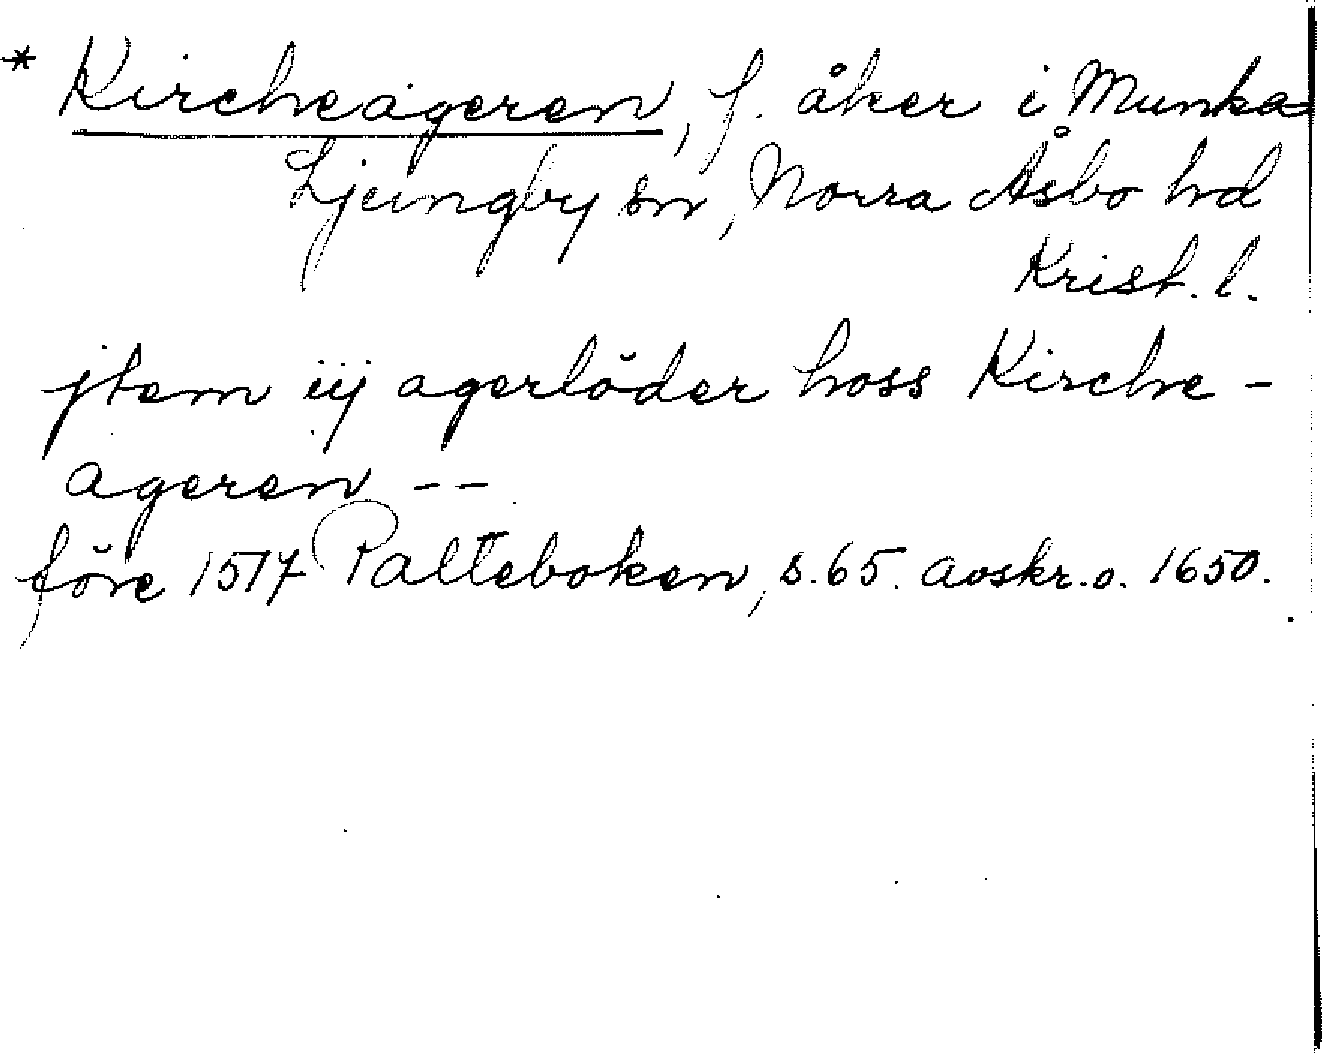 * Kircheageren, f. åker i Munka-
Ljungby sn, Norra Åsbo hd
Krist. l.
jtem iij agerlöder hoss Kirche-
ageren --
före 1517 Palteboken, s.65. avskr.o. 1650.